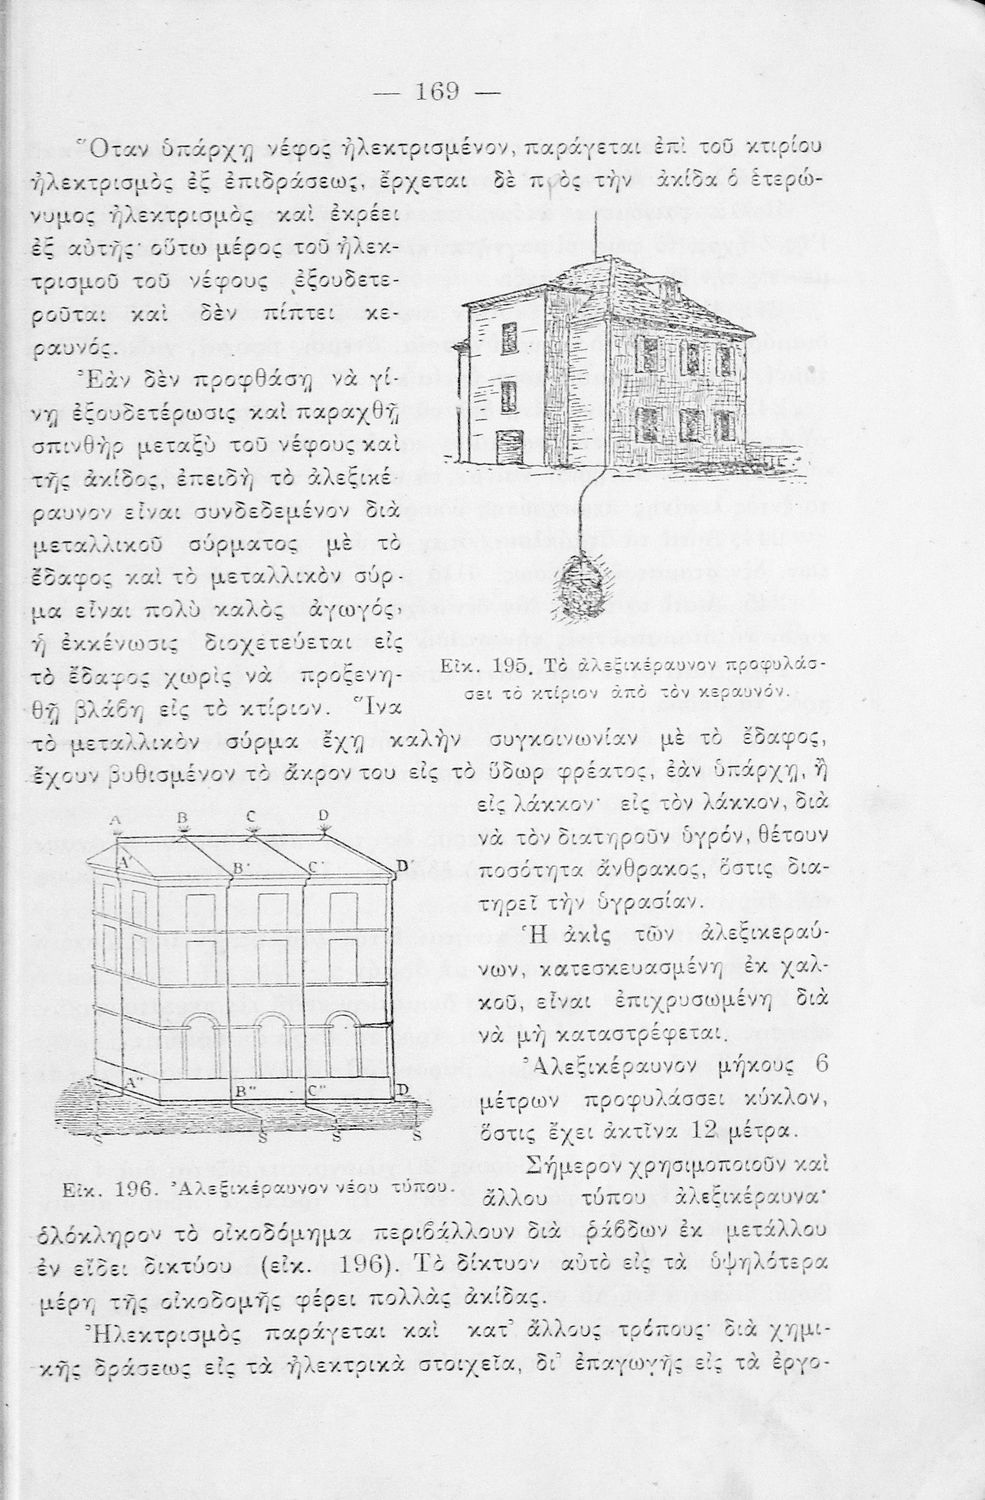 — 169 —
Ὅταν ὑπάρχῃ νέφος ἠλεκτρισμένον, παράγεται ἐπὶ τοῦ κτιρίου
ἠλεκτρισμὸς ἐξ ἐπιδράσεως, ἔρχεται δὲ πρὸς τὴν ἀκίδα ὁ ἑτερώ-
νυμος ἠλεκτρισμὸς καὶ ἐκρέει
ἐξ αὐτῆς· οὕτω μέρος τοῦ ἠλεκ-
τρισμοῦ τοῦ νέφους ἐξουδετε-
ροῦται καὶ δὲν πίπτει κε-
ραυνός.
Ἐὰν δὲν προφθάσῃ νὰ γί-
νῃ ἐξουδετέρωσις καὶ παραχθῇ
σπινθὴρ μεταξὺ τοῦ νέφους καὶ
τῆς ἀκίδος, ἐπειδὴ τὸ ἀλεξικέ
ραυνον εἶναι συνδεδεμένον διὰ
μεταλλικοῦ σύρματος μὲ τὸ
ἔδαφος καὶ τὸ μεταλλικὸν σύρ-
μα εἶναι πολὺ καλὸς ἀγωγός,
ἡ ἐκκένωσις διοχετεύεται εἰς
τὸ ἔδαφος χωρὶς νὰ προξενη-
θῇ βλάβη εἰς τὸ κτίριον. Ἵνα
Εἰκ. 195. Τὸ ἀλεξικέραυνον προφυλάσ-
σει τὸ κτίριον ἀπὸ τὸν κεραυνόν.
τὸ μεταλλικὸν σύρμα ἔχῃ καλὴν συγκοινωνίαν μὲ τὸ ἔδαφος,
ἔχουν βυθισμένον τὸ ἄκρον του εἰς τὸ ὕδωρ φρέατος, ἐὰν ὑπάρχῃ, ἢ
εἰς λάκκον· εἰς τὸν λάκκον, διὰ
νὰ τὸν διατηροῦν ὑγρόν, θέτουν
ποσότητα ἄνθρακος, ὅστις δια-
τηρεῖ τὴν ὑγρασίαν.
Ἡ ἀκὶς τῶν ἀλεξικεραύ-
νων, κατεσκευασμένη ἐκ χαλ-
κοῦ, εἶναι ἐπιχρυσωμένη διὰ
νὰ μὴ καταστρέφεται.
Ἀλεξικέραυνον μήκους 6
μέτρων προφυλάσσει κύκλον,
ὅστις ἔχει ἀκτῖνα 12 μέτρα.
Σήμερον χρησιμοποιοῦν καὶ
ἄλλου τύπου ἀλεξικέραυνα·
A B C D
A' B' C' D'
A" B" C" D
S S S S
Εἰκ. 196. Ἀλεξικέραυνον νέου τύπου.
ὁλόκληρον τὸ οἰκοδόμημα περιβάλλουν διὰ ῥάβδων ἐκ μετάλλου
ἐν εἴδει δικτύου (εἰκ. 196). Τὸ δίκτυον αὐτὸ εἰς τὰ ὑψηλότερα
μέρη τῆς οἰκοδομῆς φέρει πολλὰς ἀκίδας.
Ἠλεκτρισμὸς παράγεται καὶ κατ' ἄλλους τρόπους· διὰ χημι-
κῆς δράσεως εἰς τὰ ἠλεκτρικὰ στοιχεῖα, δι' ἐπαγωγῆς εἰς τὰ ἐργο-